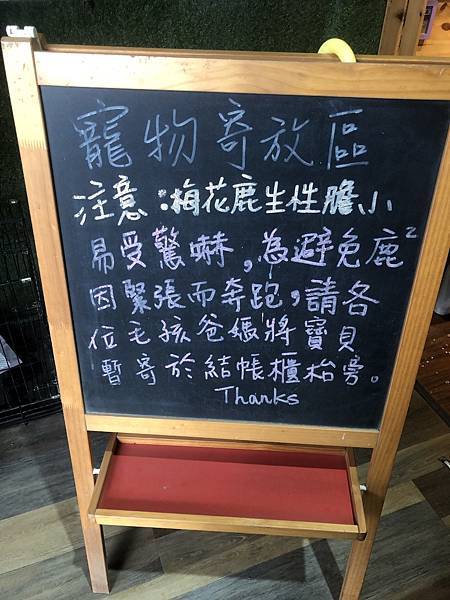 寵物寄放區
注意:梅花鹿生性膽小
易受驚嚇,為避免鹿²
因緊張而奔跑,請各
位毛孩爸媽將寶貝
暫寄於結帳櫃枱旁。
Thanks